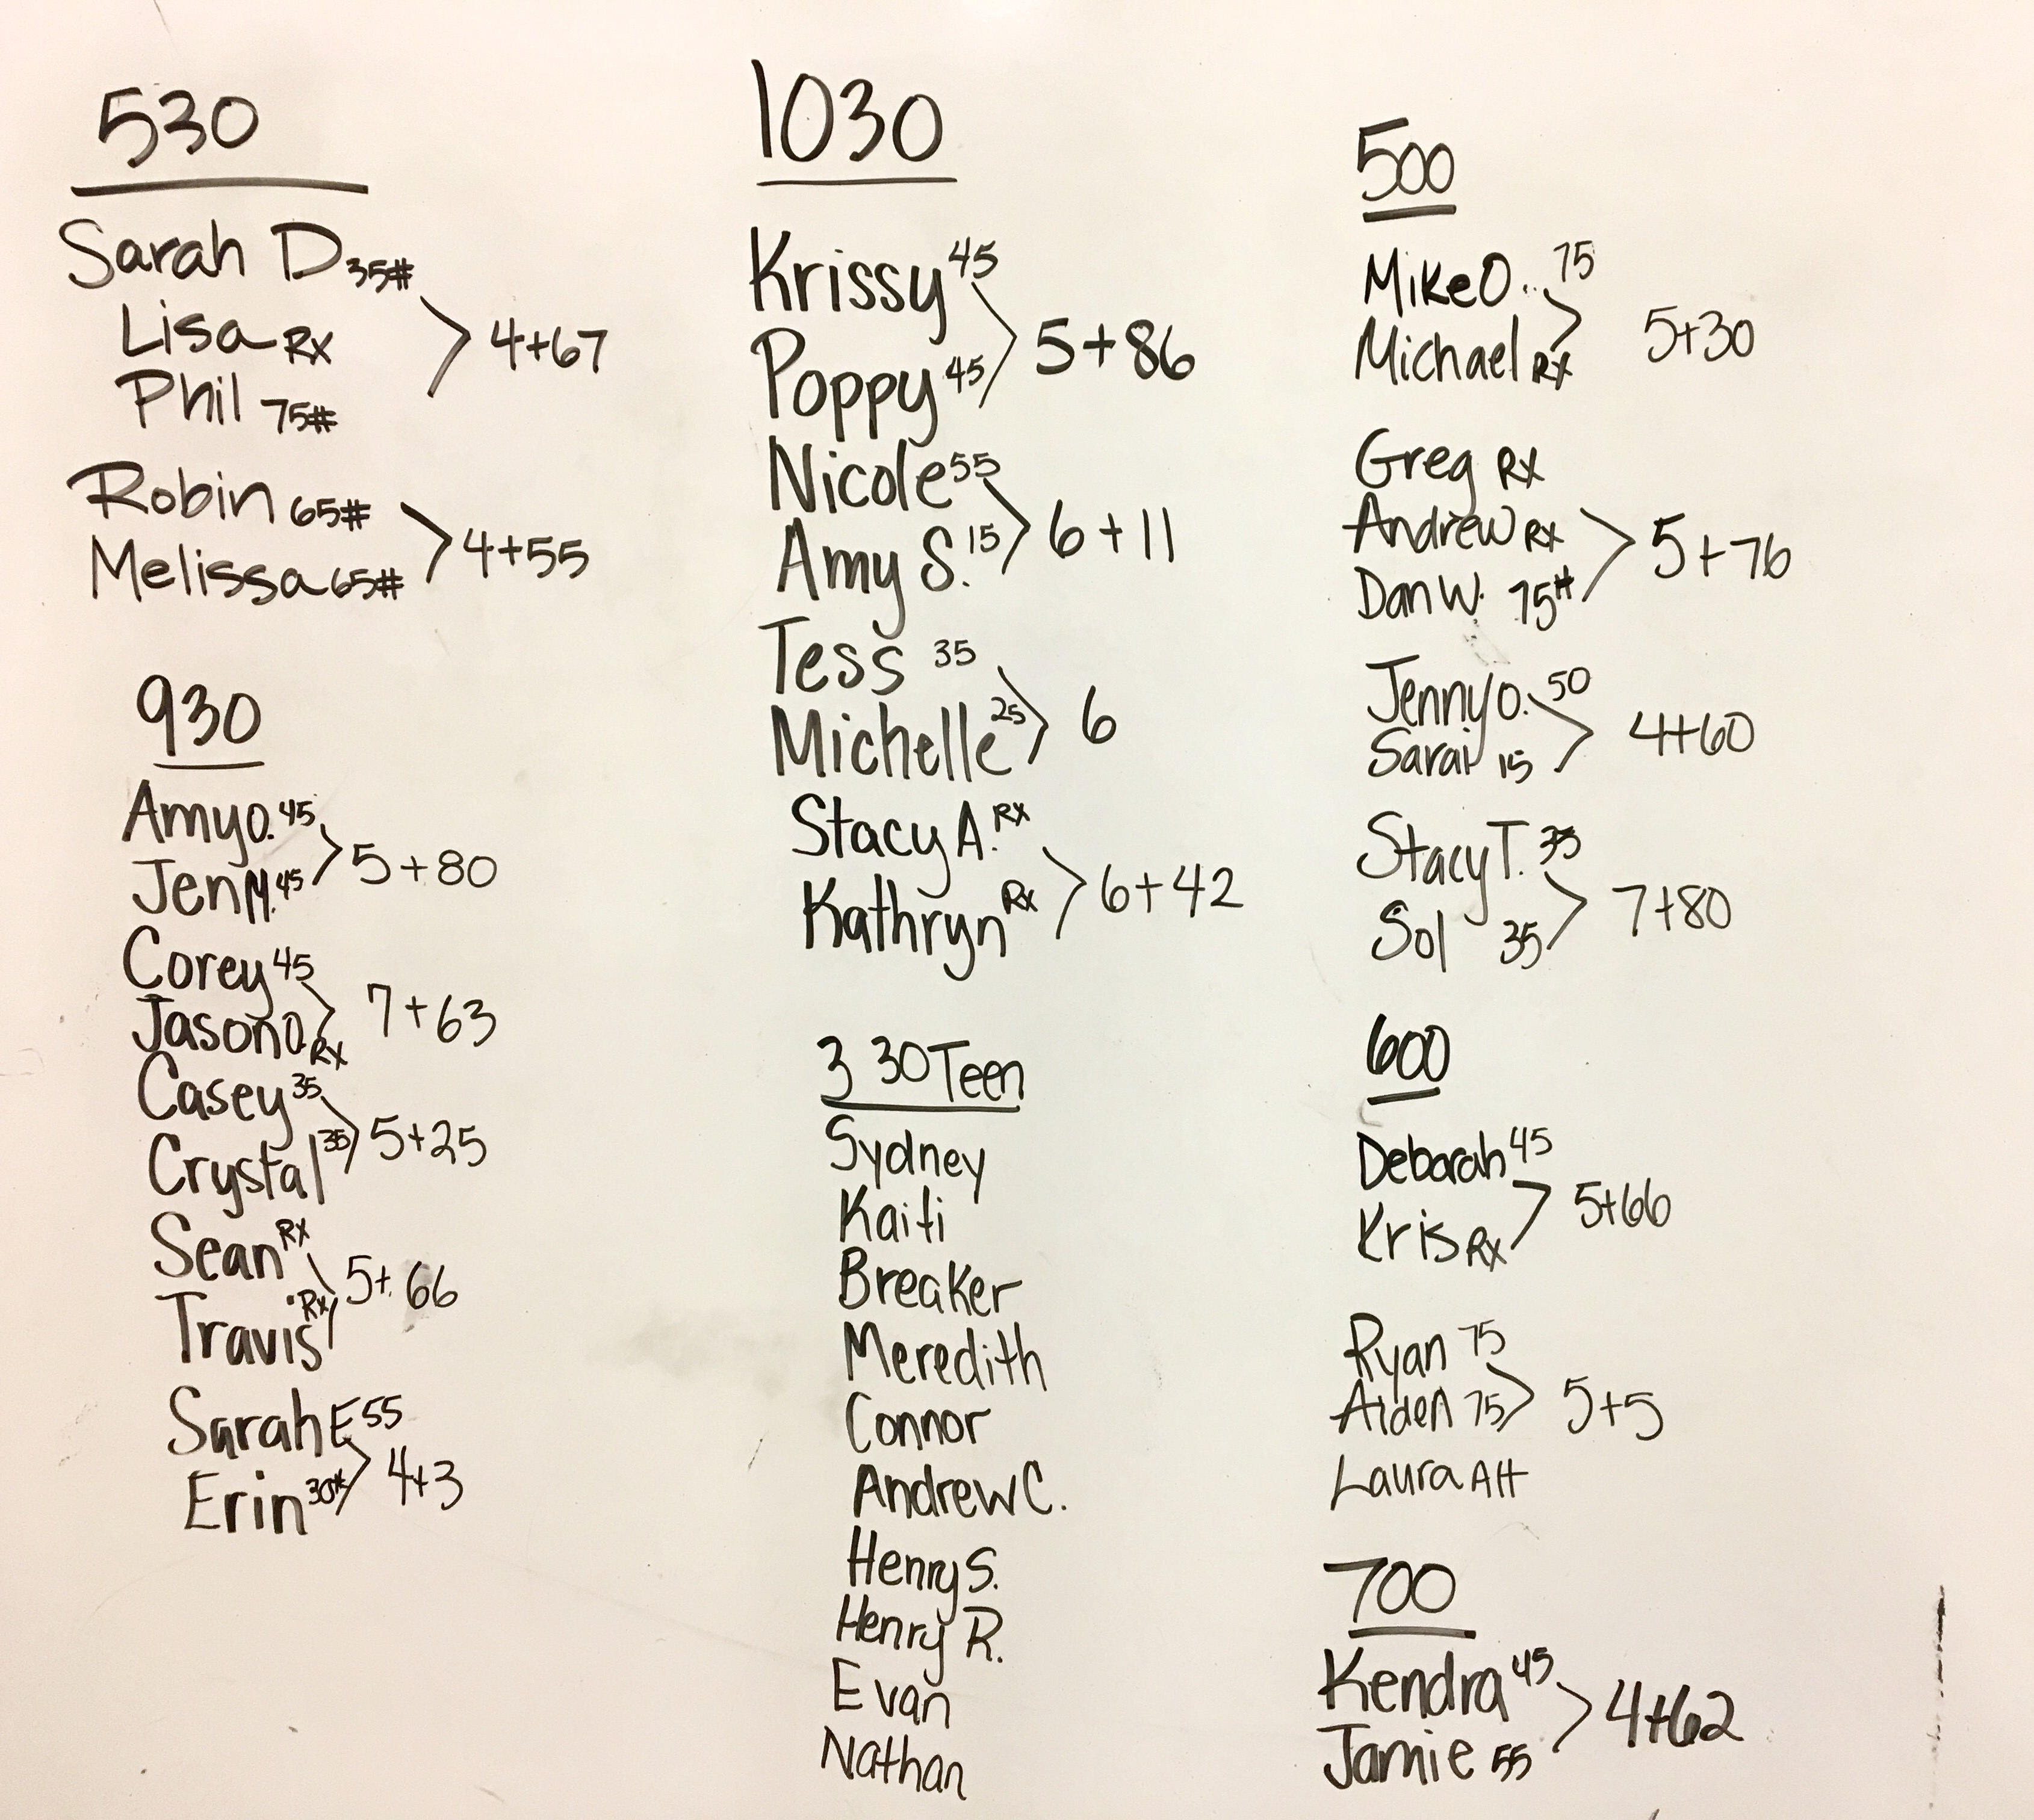 530
Sarah D 35#
Lisa RX
Phil 75#
4+67
Robin 65#
Melissa 65#
4+55
930
Amy O. 45
Jen M. 45
5+80
Corey 45
Jason O. RX
7+63
Casey 35
Crystal 35
5+25
Sean RX
Travis RX
5+66
Sarah E 55
Erin 30#
4+3
1030
Krissy 45
Poppy 45
5+86
Nicole 55
Amy S. 15
6+11
Tess 35
Michelle 25
6
Stacy A. RX
Kathryn RX
6+42
3 30 Teen
Sydney
Kaiti
Breaker
Meredith
Connor
Andrew C.
Henry S.
Henry R.
Evan
Nathan
500
Mike O. 75
Michael RX
5+30
Greg RX
Andrew RX
Dan W. 75#
5+76
Jenny O. 50
Sarai 15
4+60
Stacy T. 35
Sol 35
7+80
600
Deborah 45
Kris RX
5+66
Ryan 75
Aiden 75
5+5
Laura AH
700
Kendra 45
Jamie 55
4+62